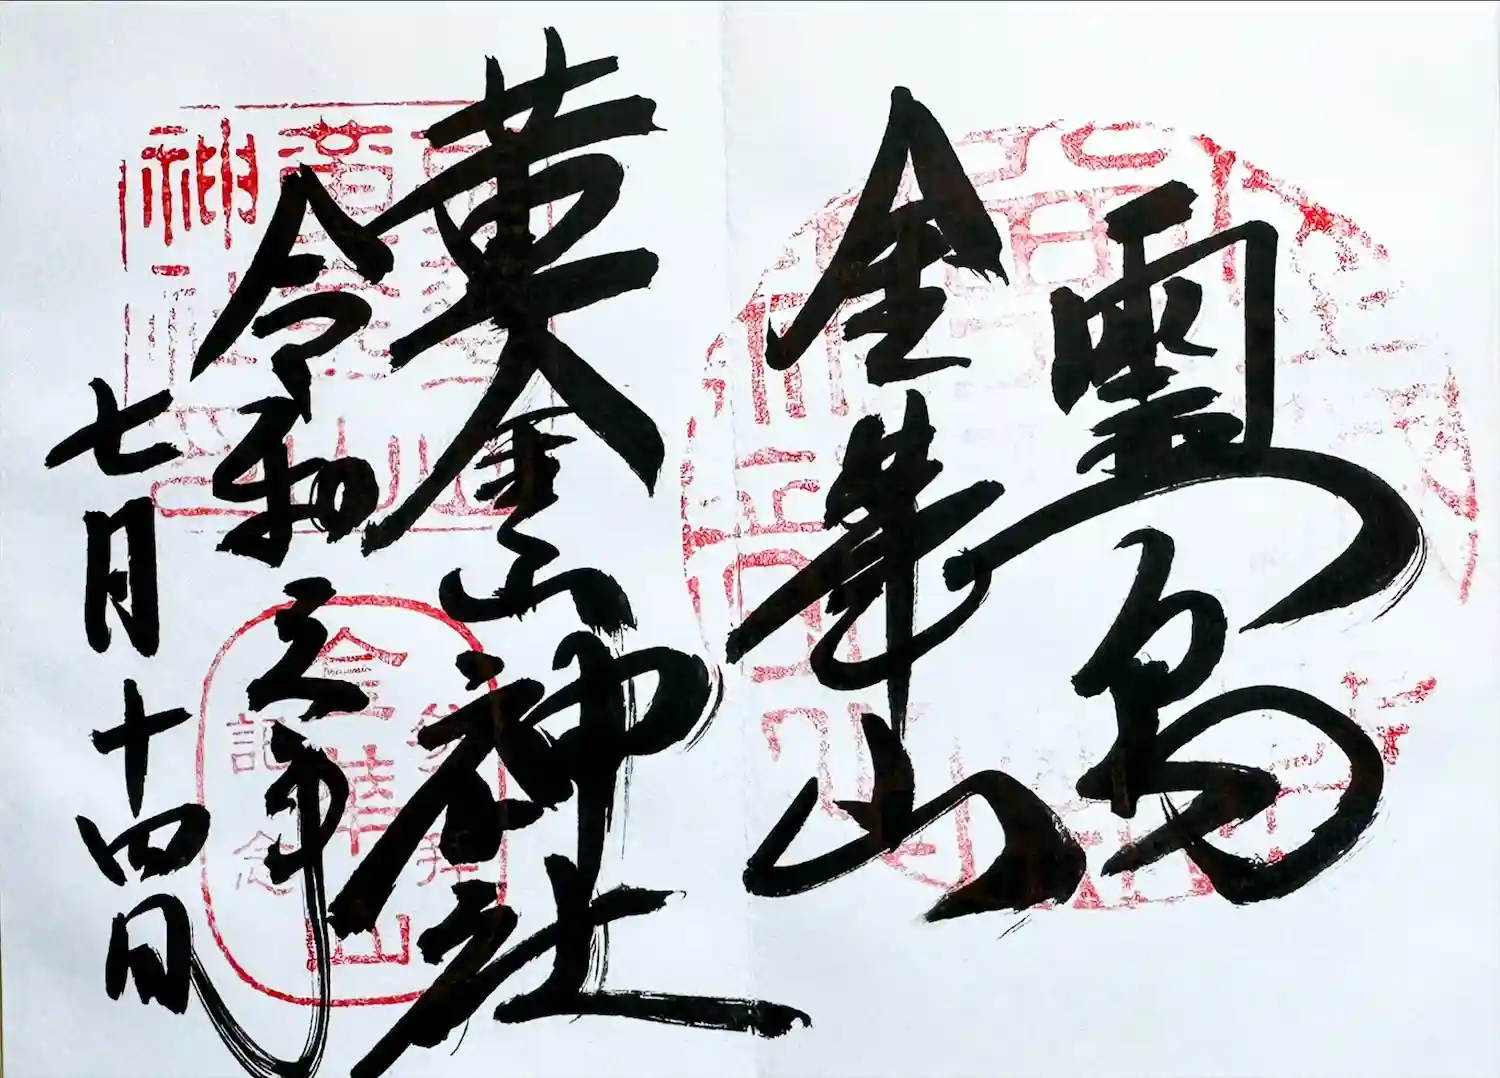 霊島
金華山
黄金山神社
令和三年
七月十四日
参拝
金華山
記念